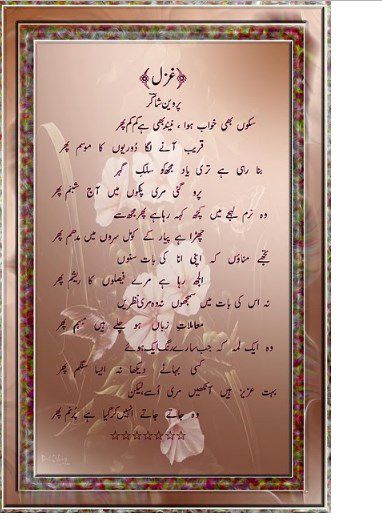 ﴿غزل﴾
پروین شاکر
سکوں بھی خواب ہوا ، نیند بھی ہے کم کم پھر
قریب آنے لگا دوریوں کا موسم پھر
بنا رہی ہے تری یاد مجھ کو سلکِ گہر
پرو گئی مری پلکوں میں آج شبنم پھر
وہ نرم لہجے میں کچھ کہہ رہا ہے پھر مجھ سے
چھڑا ہے پیار کے کومل سروں میں مدھم پھر
تجھے مناؤں کہ اپنی انا کی بات سنوں
الجھ رہا ہے مرے فیصلوں کا ریشم پھر
نہ اس کی بات میں سمجھوں نہ وہ مری نظریں
معاملاتِ زباں ہو چلے ہیں مبہم پھر
وہ ایک لمحہ کہ جب سارے رنگ ایک ہوئے
کسی بہانے دیکھا نہ ایسا سنگم پھر
بہت عزیز ہیں آنکھیں مری اُسے لیکن
وہ جاتے جاتے انہیں کر گیا ہے پُرنم پھر
☆☆☆☆☆☆☆